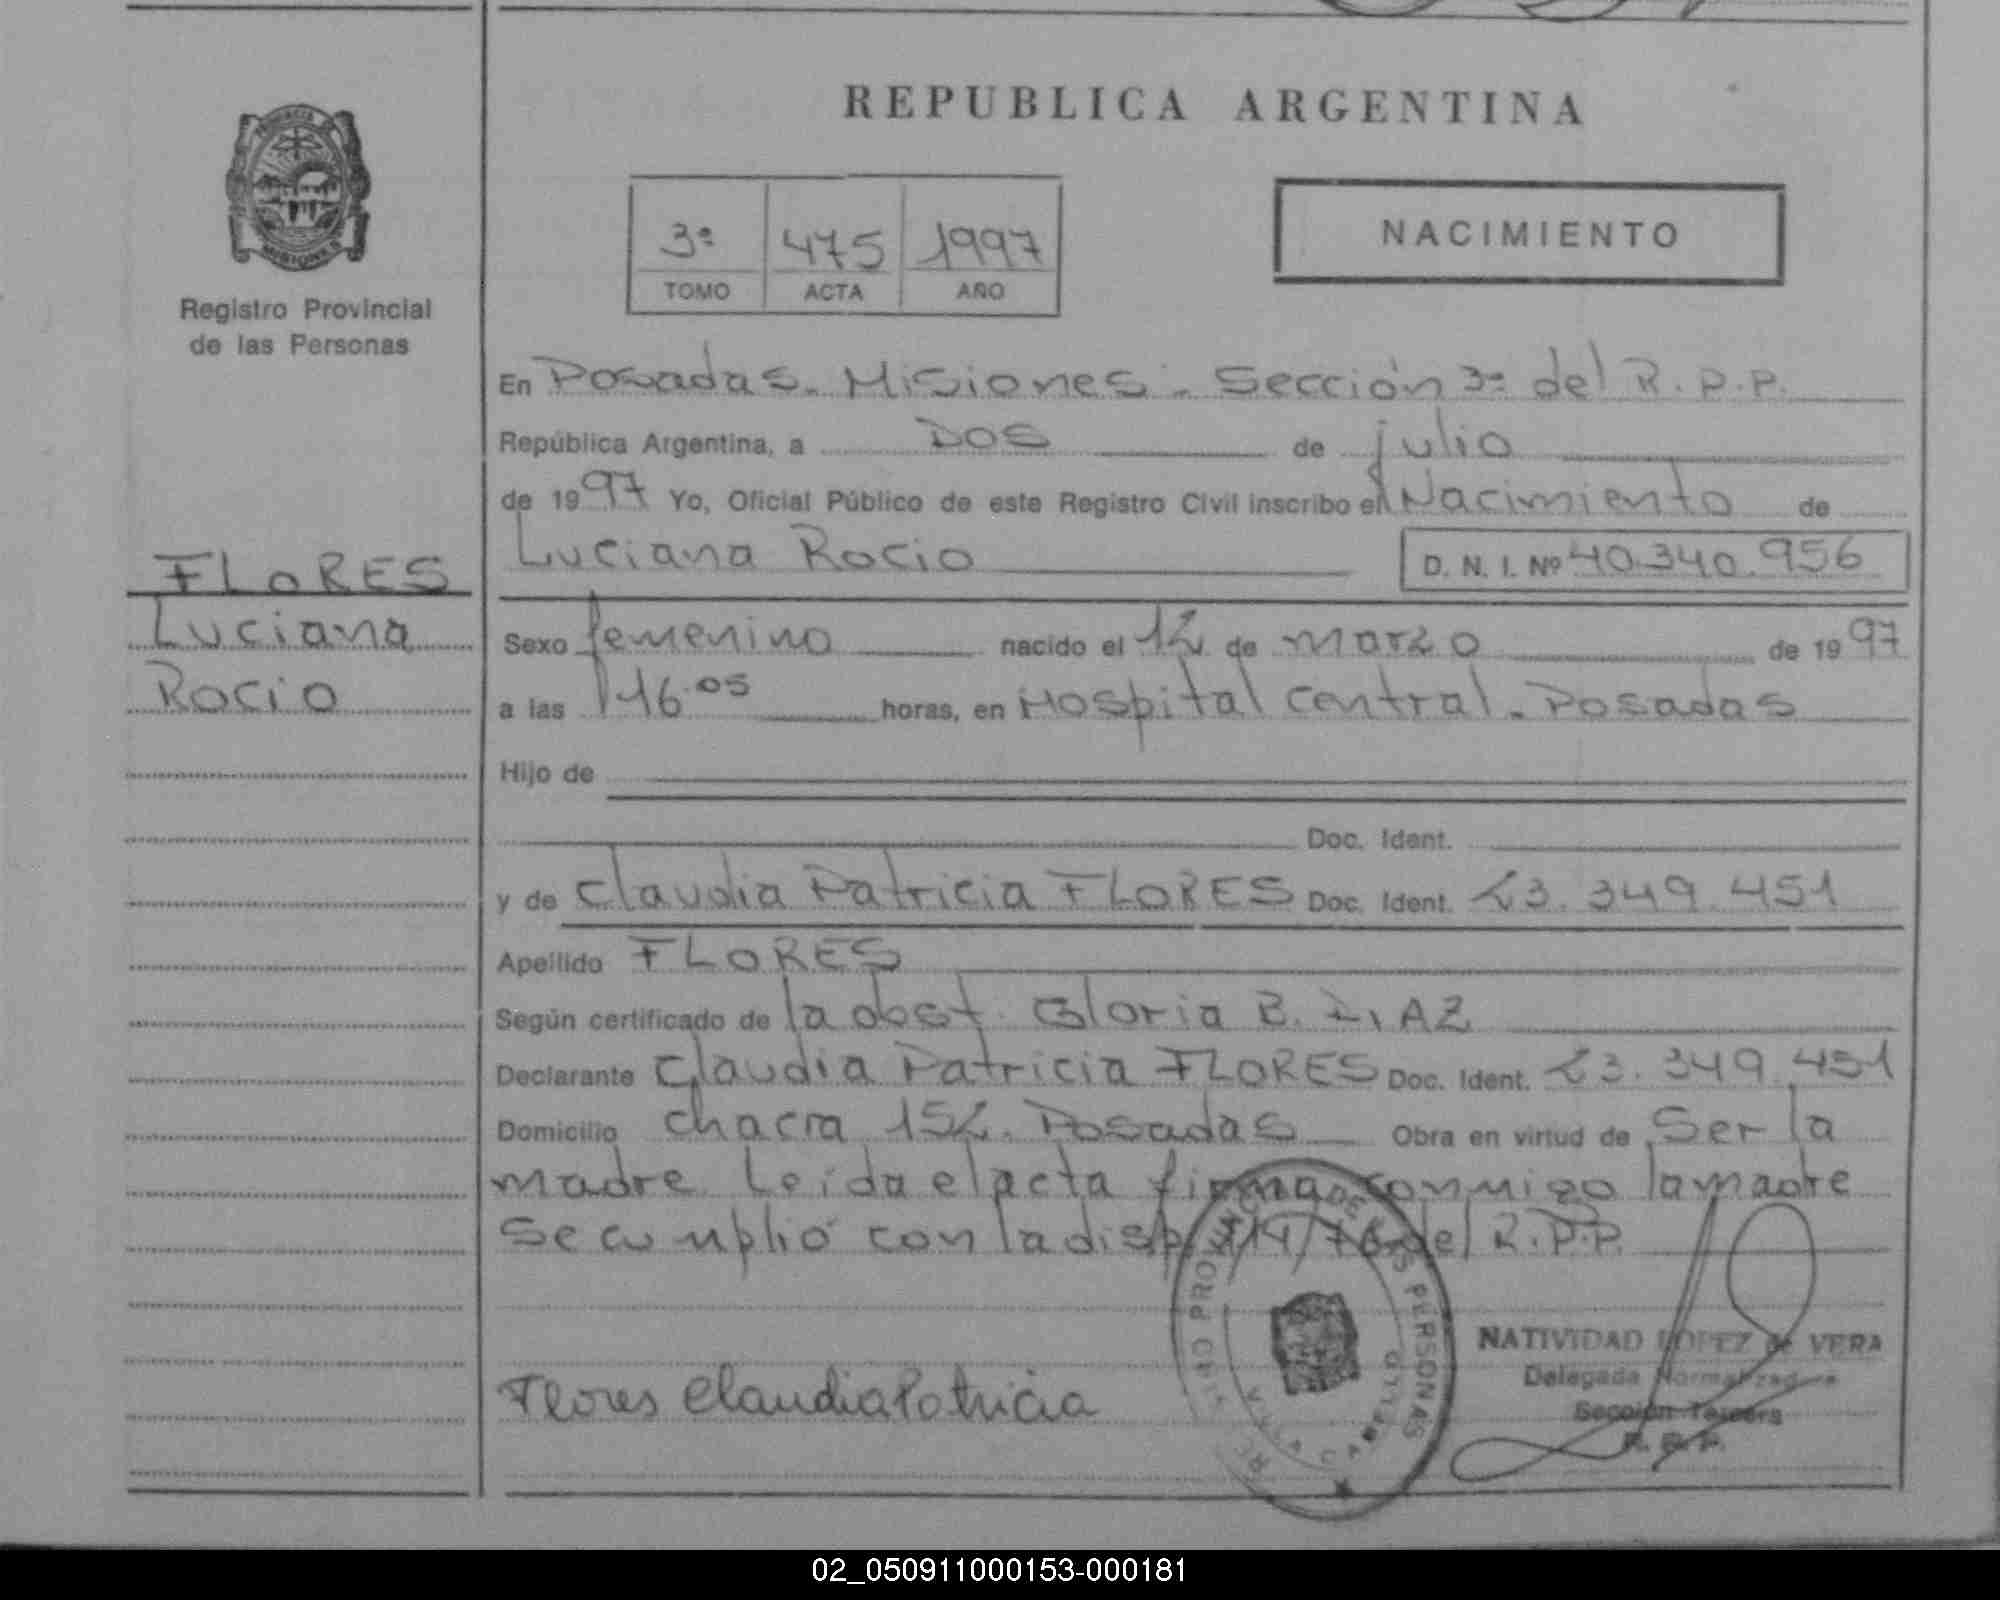 REPUBLICA ARGENTINA
PROVINCIA DE
MISIONES
Registro Provincial
de las Personas
3º 475 1997
TOMO ACTA AÑO
NACIMIENTO
En Posadas - Misiones - Sección 3º del R.P.P.
República Argentina, a DOS de julio
de 1997 Yo, Oficial Público de este Registro Civil inscribo el Nacimiento de
Luciana Rocio D. N. I. Nº 40.340.956
FLORES
Luciana
Rocio
Sexo femenino nacido el 12 de marzo de 1997
a las 16.05 horas, en Hospital Central - Posadas
Hijo de
Doc. Ident.
y de Claudia Patricia FLORES Doc. Ident. 23.349.451
Apellido FLORES
Según certificado de la obst. Gloria B. DIAZ
Declarante Claudia Patricia FLORES Doc. Ident. 23.349.451
Domicilio chacra 152. Posadas Obra en virtud de Ser la
madre Leida el acta firma conmigo la madre
Se cumplió con la disp. /76 del R.P.P.
Flores Claudia Patricia
REGISTRO PROVINCIAL DE LAS PERSONAS
VILLA CABELLO
NATIVIDAD LOPEZ de VERA
Delegada Normalizadora
Sección Tercera
R. P. P.
02_050911000153-000181